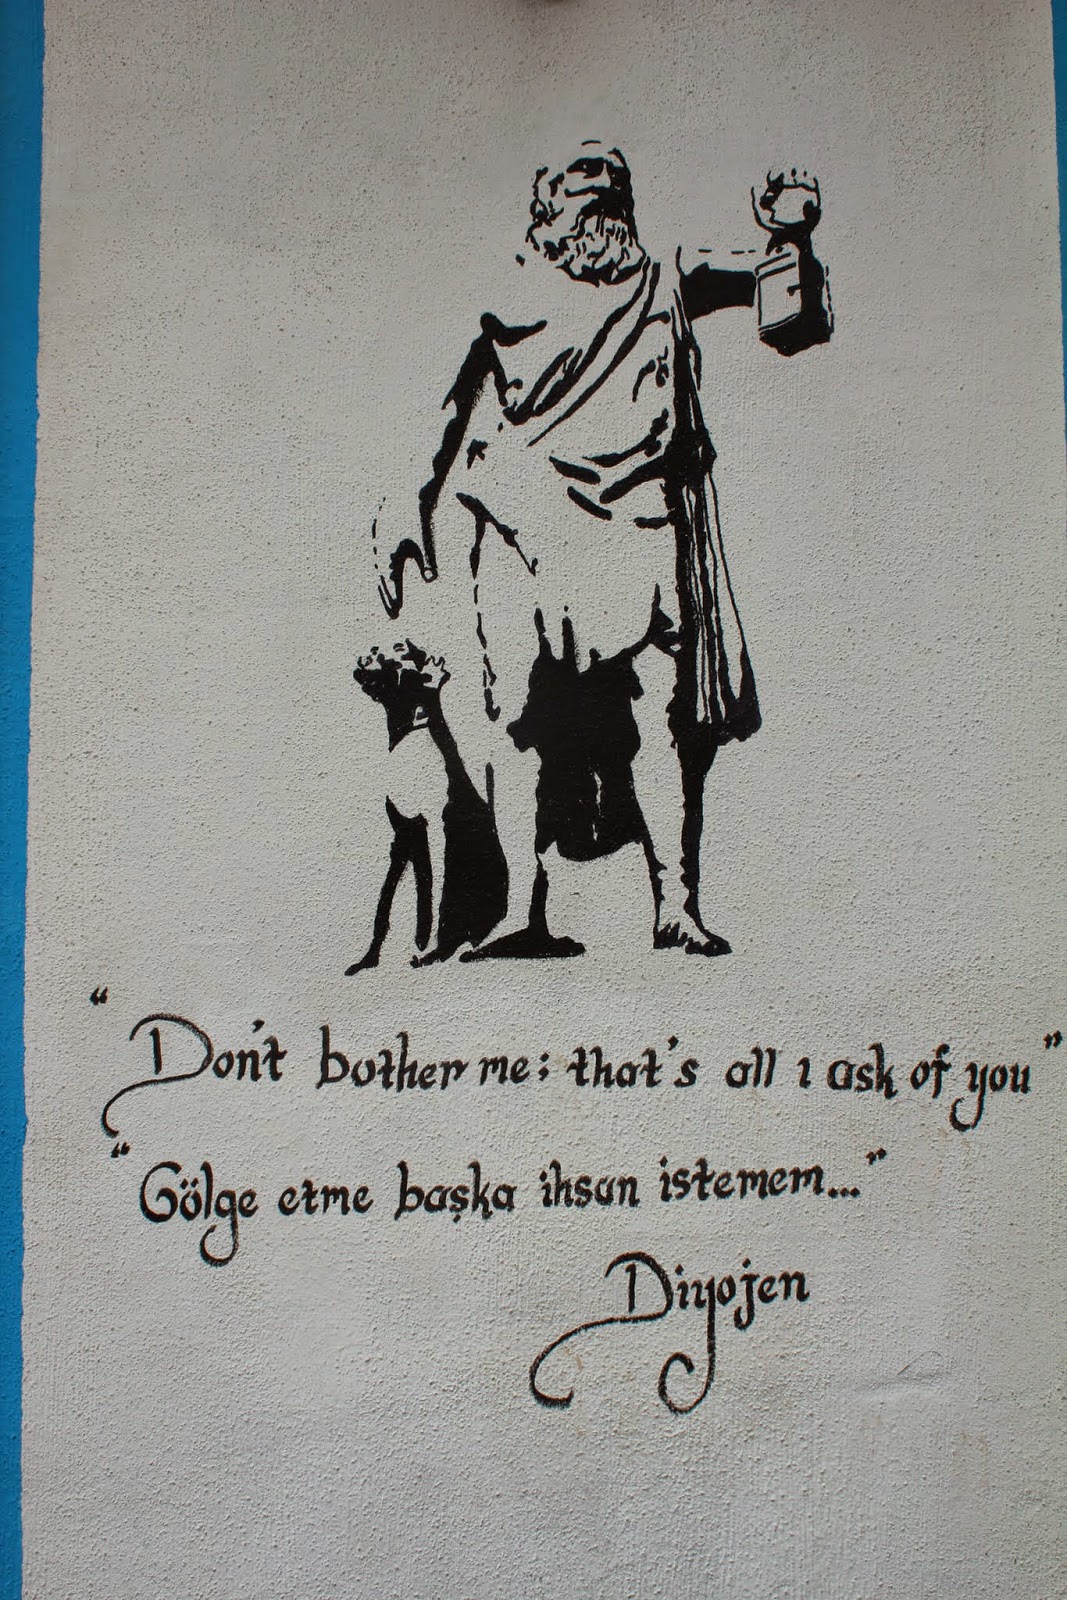 “Don't bother me; that's all ı ask of you”
“Gölge etme başka ihsan istemem...”
Diyojen